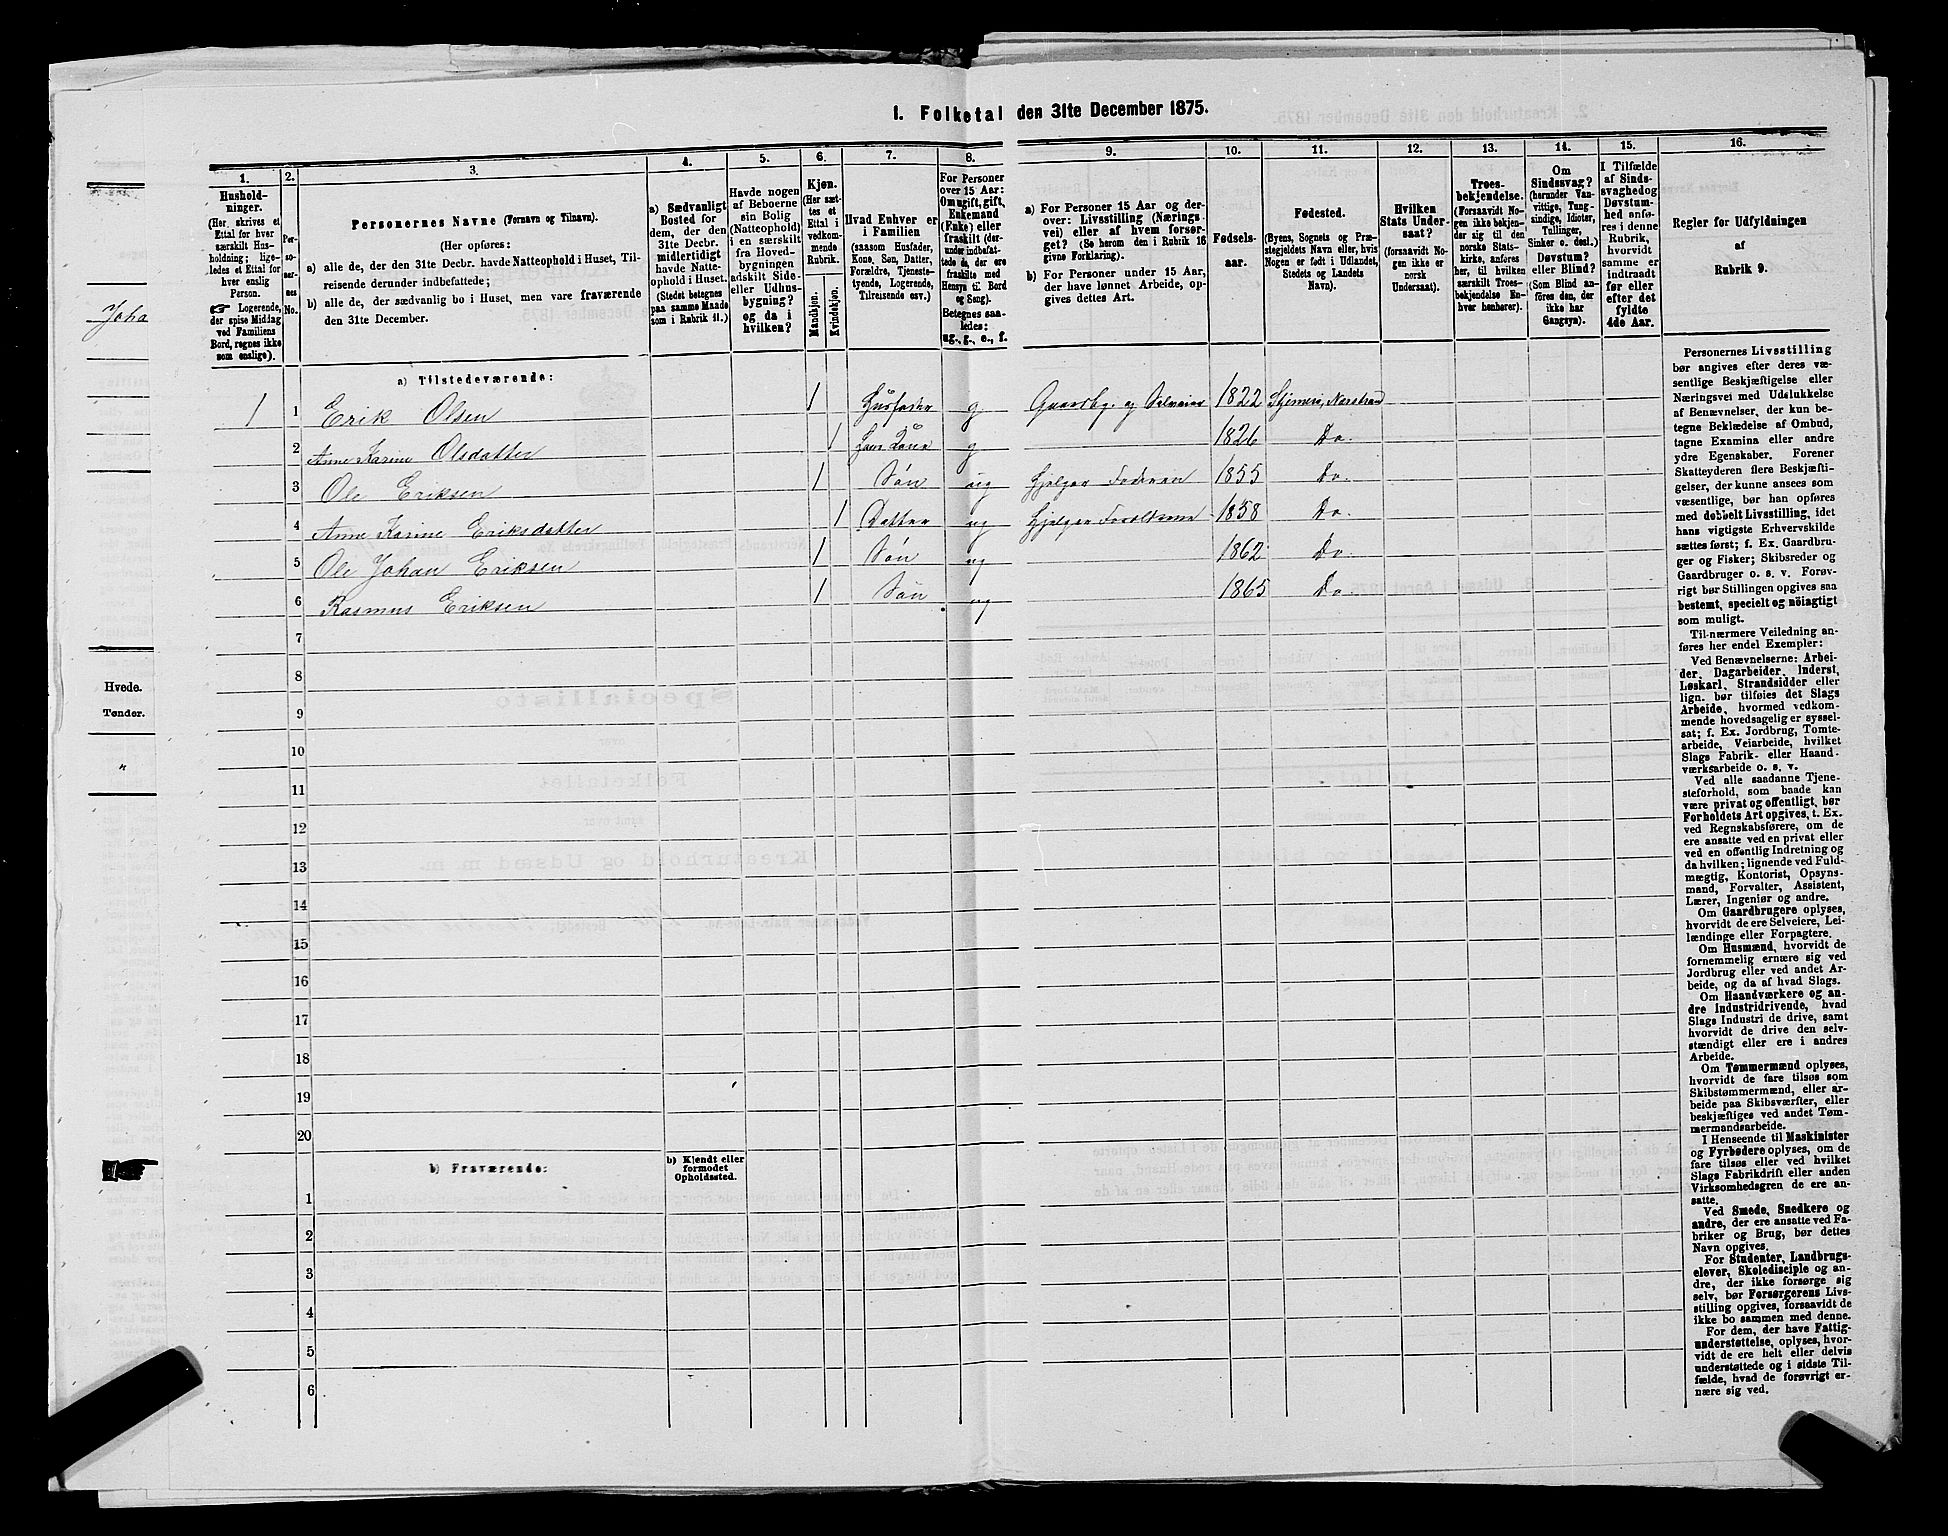 1. Folketal den 31te December 1875.
1.
Hushold-
ninger.
(Her skrives et
Ettal for hver
særskilt Hus-
holdning; lige-
ledes et Ettal for
hver enslig
Person.
☞ Logerende,
der spise Middag
ved Familiens
Bord, regnes ikke
som enslige).
2.
Per-
so-
ner-
nes
No.
3.
Personernes Navne (Fornavn og Tilnavn).
(Her opføres:
a) alle de, der den 31te Decbr. havde Natteophold i Huset, Til-
reisende derunder indbefattede;
b) alle de, der sædvanlig bo i Huset, men vare fraværende
den 31te December.
4.
a) Sædvanligt
Bosted for
dem, der den
31te Decbr.
midlertidigt
havde Natte-
ophold i Huset.
(Stedet betegnes
paa samme Maade
som i Rubrik 11.)
5.
Havde nogen
af Beboerne
sin Bolig
(Natteophold)
i en særskilt
fra Hoved-
bygningen
adskilt Side-
eller Udhus-
bygning?
og da i
hvilken?
6.
Kjøn.
(Her sæt-
tes et
Ettal i
vedkom-
mende
Rubrik.
Mandkjøn.
Kvindekjøn.
7.
Hvad Enhver er
i Familien
(saasom Husfader,
Kone, Søn, Datter,
Forældre, Tjeneste-
tyende, Logerende,
Tilreisende osv.)
8.
For Personer
over 15 Aar:
Om ugift, gift,
Enkemand
(Enke) eller
fraskilt (der-
under indbefat-
tede de, der ere
fraskilte med
Hensyn til Bord
og Seng).
Betegnes saa-
ledes:
ug., g., e., f.
9.
a) For Personer 15 Aar og der-
over: Livsstilling (Nærings-
vei) eller af hvem forsør-
get? (Se herom den i Rubrik 16
givne Forklaring).
b) For Personer under 15 Aar,
der have lønnet Arbeide, op-
gives dettes Art.
10.
Fødsels-
aar.
11.
Fødested.
(Byens, Sognets og Præ-
stegjeldets Navn eller, hvis
Nogen er født i Udlandet,
Stedets og Landets
Navn).
12.
Hvilken
Stats Under-
saat?
(forsaavidt No-
gen ikke er
norsk
Undersaat).
13.
Troes-
bekjendelse.
(Forsaavidt No-
gen ikke bekjen-
der sig til den
norske Stats-
kirke, anføres
her, til hvilken
særskilt Troes-
bekjendelse En-
hver henhører).
14.
Om
Sindssvag?
(herunder Van-
vittige, Tung-
sindige, Idioter,
Tullinger,
Sinker o. desl.)
Døvstum?
eller Blind?
(Som Blind an-
føres den, der
ikke har
Gangsyn).
15.
I Tilfælde
af Sinds-
svaghed og
Døvstum-
hed anfø-
res i denne
Rubrik,
hvorvidt
samme er
indtraadt
før eller
efter det
fyldte
4de Aar.
16.
Regler for Udfyldningen
af
Rubrik 9.
a) Tilstedeværende:
1 1 Erik Olsen 1 Husfader g Gaardbg. og Selveier 1822
2 Anne Karine Olsdatter 1 g 1826 Do.
3 Ole Eriksen 1 Søn ug Hjelper Faderen 1855 Do.
4 Anne Karine Eriksdatter 1 Datter ug Hjelper Forældrene 1858 Do.
5 Ole Johan Eriksen 1 Søn ug 1862 Do
6 Rasmus Eriksen 1 Søn ug 1865 Do.
7
8
9
10
11
12
13
14
15
16
17
18
19
20
b) Fraværende:
b) Kjendt eller
formodet
Opholdssted.
1
2
3
4
5
6
Personernes Livsstilling
bør angives efter deres væ-
sentlige Beskjæftigelse eller
Næringsvei med Udelukkelse
af Benævnelser, der kun be-
tegne Beklædelse af Ombud,
tagne Examina eller andre
ydre Egenskaber. Forener
Skatteyderen flere Beskjæfti-
gelser, der kunne ansees som
væsentlige, bør han opføres
med dobbelt Livsstilling, idet
hans vigtigste Erhvervskilde
sættes først; f. Ex. Gaardbru-
ger og Fisker; Skibsreder og
Gaardbruger o. s. v. Forøv-
rigt bør Stillingen opgives saa
bestemt, specielt og nöiagtigt
som muligt.
Til nærmere Veiledning an-
føres her endel Exempler:
Ved Benævnelserne: Arbei-
der, Dagarbeider, Inderst,
Løskarl, Strandsidder eller
lign. bør tilføies det Slags
Arbeide, hvormed vedkom-
mende hovedsagelig er syssel-
sat; f. Ex. Jordbrug, Tomte-
arbeide, Veiarbeide, hvilket
Slags Fabrik- eller Haand-
værksarbeide o. s. v.
Ved alle saadanne Tjene-
steforhold, som baade kan
være privat og offentligt, bør
Forholdets Art opgives, t. Ex.
ved Regnskabsførere, om de
ere ansatte ved en privat eller
ved en offentlig Indretning og
da hvilken; lignende ved Fuld-
mægtig, Kontorist, Opsyns-
mand, Forvalter, Assistent,
Lærer, Ingeniør og andre.
Om Gaardbrugere oplyses,
hvorvidt de ere Selveiere, Lei-
lændinge eller Forpagtere.
Om Husmænd, hvorvidt de
fornemmelig ernære sig ved
Jordbrug eller ved andet Ar-
beide, og da af hvad Slags.
Om Haandværkere og an-
dre Industridrivende, hvad
Slags Industri de drive, samt
hvorvidt de drive den selv-
stændigt eller ere i andres
Arbeide.
Om Tømmermænd oplyses,
hvorvidt de fare tilsøs som
Skibstømmermænd, eller ar-
beide paa Skibsværfter, eller
beskjæftiges ved andet Tøm-
mermandsarbeide.
I Henseende til Maskinister
og Fyrbødere oplyses, om de
fare tilsøs eller ved hvilket
Slags Fabrikdrift eller anden
Virksomhedsgren de ere an-
satte.
Ved Smede, Snedkere og
andre, der ere ansatte ved Fa-
briker og Brug, bør dettes
Navn opgives.
For Studenter, Landbrugs-
elever, Skoledisciple og an-
dre, der ikke forsørge sig
selv, bør Forsørgerens Livs-
stilling opgives, forsaavidt de
ikke bo sammen med denne.
For dem, der have Fattig-
understøttelse, oplyses, hvor-
vidt de ere helt eller delvis
understøttede og i sidste Til-
fælde, hvad de forøvrigt er-
nære sig ved.
Joha
Hvede.
Tønder.
"